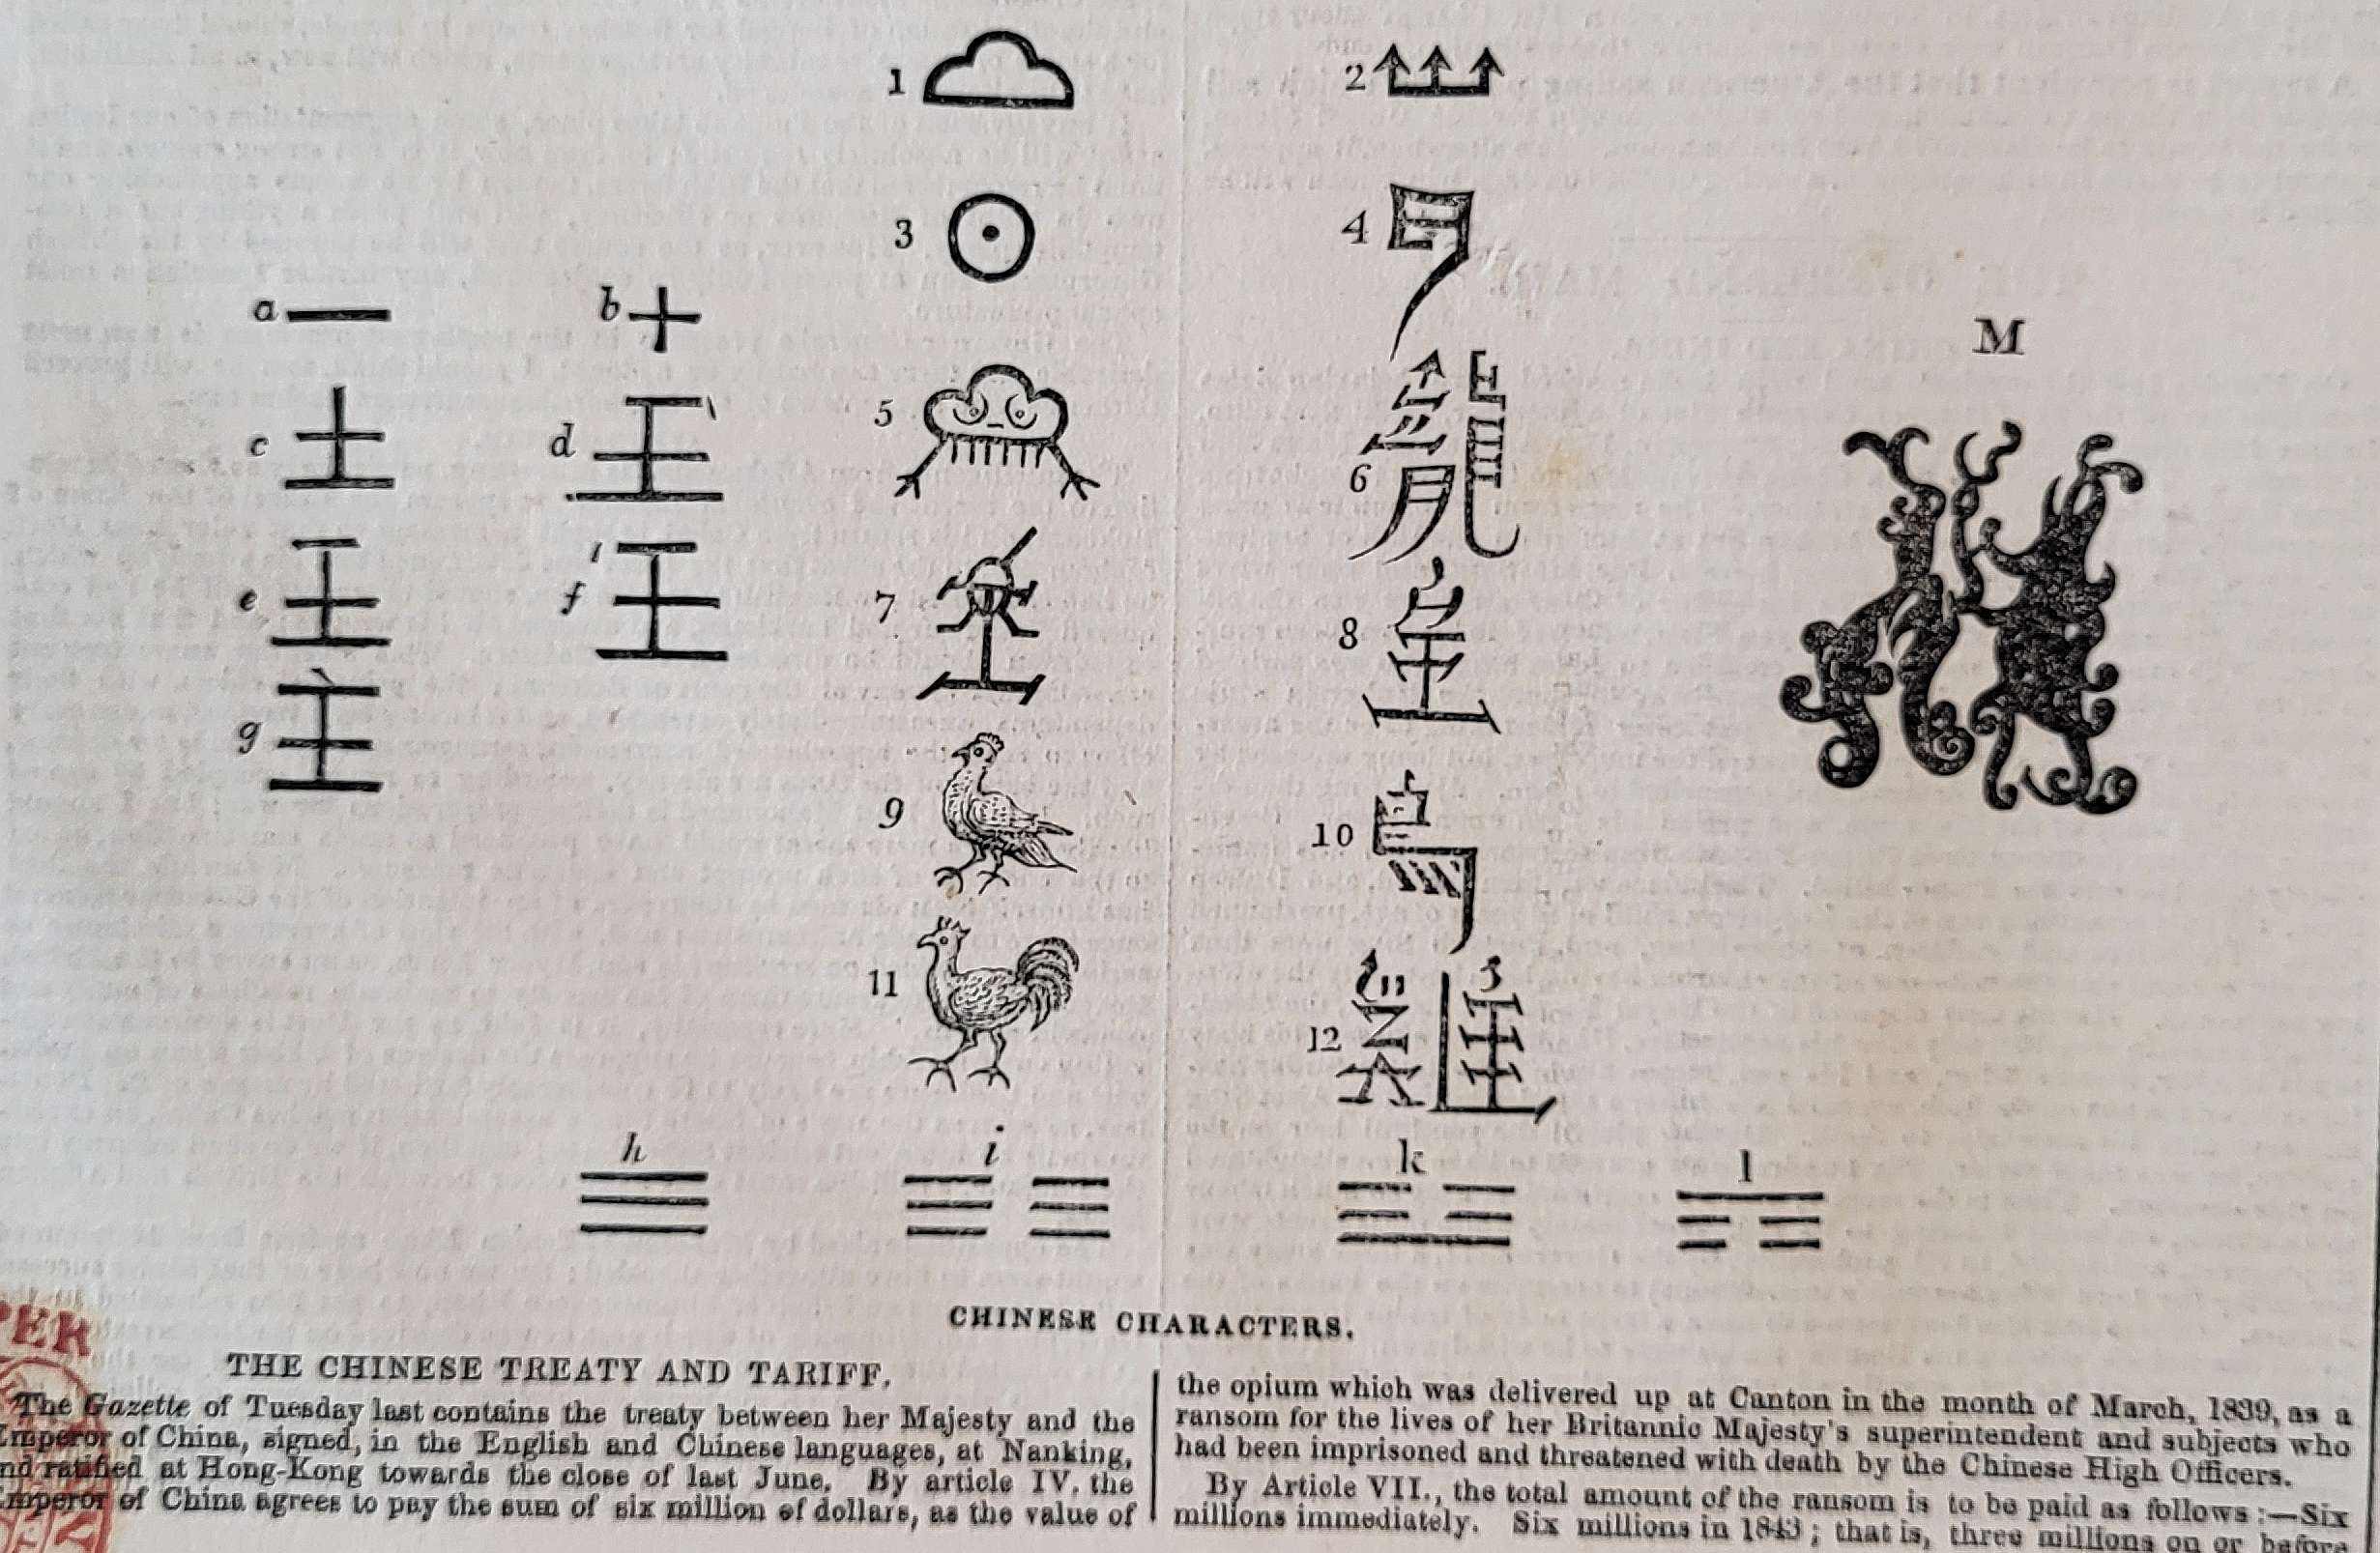 1
2
3
4
a 一
b 十
M
5
c 土
d 王
6 龍
e 王
f 王
7
8
g 主
9
10 鳥
11
12
h
☰
i
☷
k
☳
l
☶
CHINESE CHARACTERS.
PER
THE CHINESE TREATY AND TARIFF.
The Gazette of Tuesday last contains the treaty between her Majesty and the
Emperor of China, signed, in the English and Chinese languages, at Nanking,
nd ratified at Hong-Kong towards the close of last June. By article IV. the
Emperor of China agrees to pay the sum of six million of dollars, as the value of
the opium which was delivered up at Canton in the month of March, 1839, as a
ransom for the lives of her Britannic Majesty's superintendent and subjects who
had been imprisoned and threatened with death by the Chinese High Officers.
By Article VII., the total amount of the ransom is to be paid as follows:—Six
millions immediately. Six millions in 1843; that is, three millions on or before